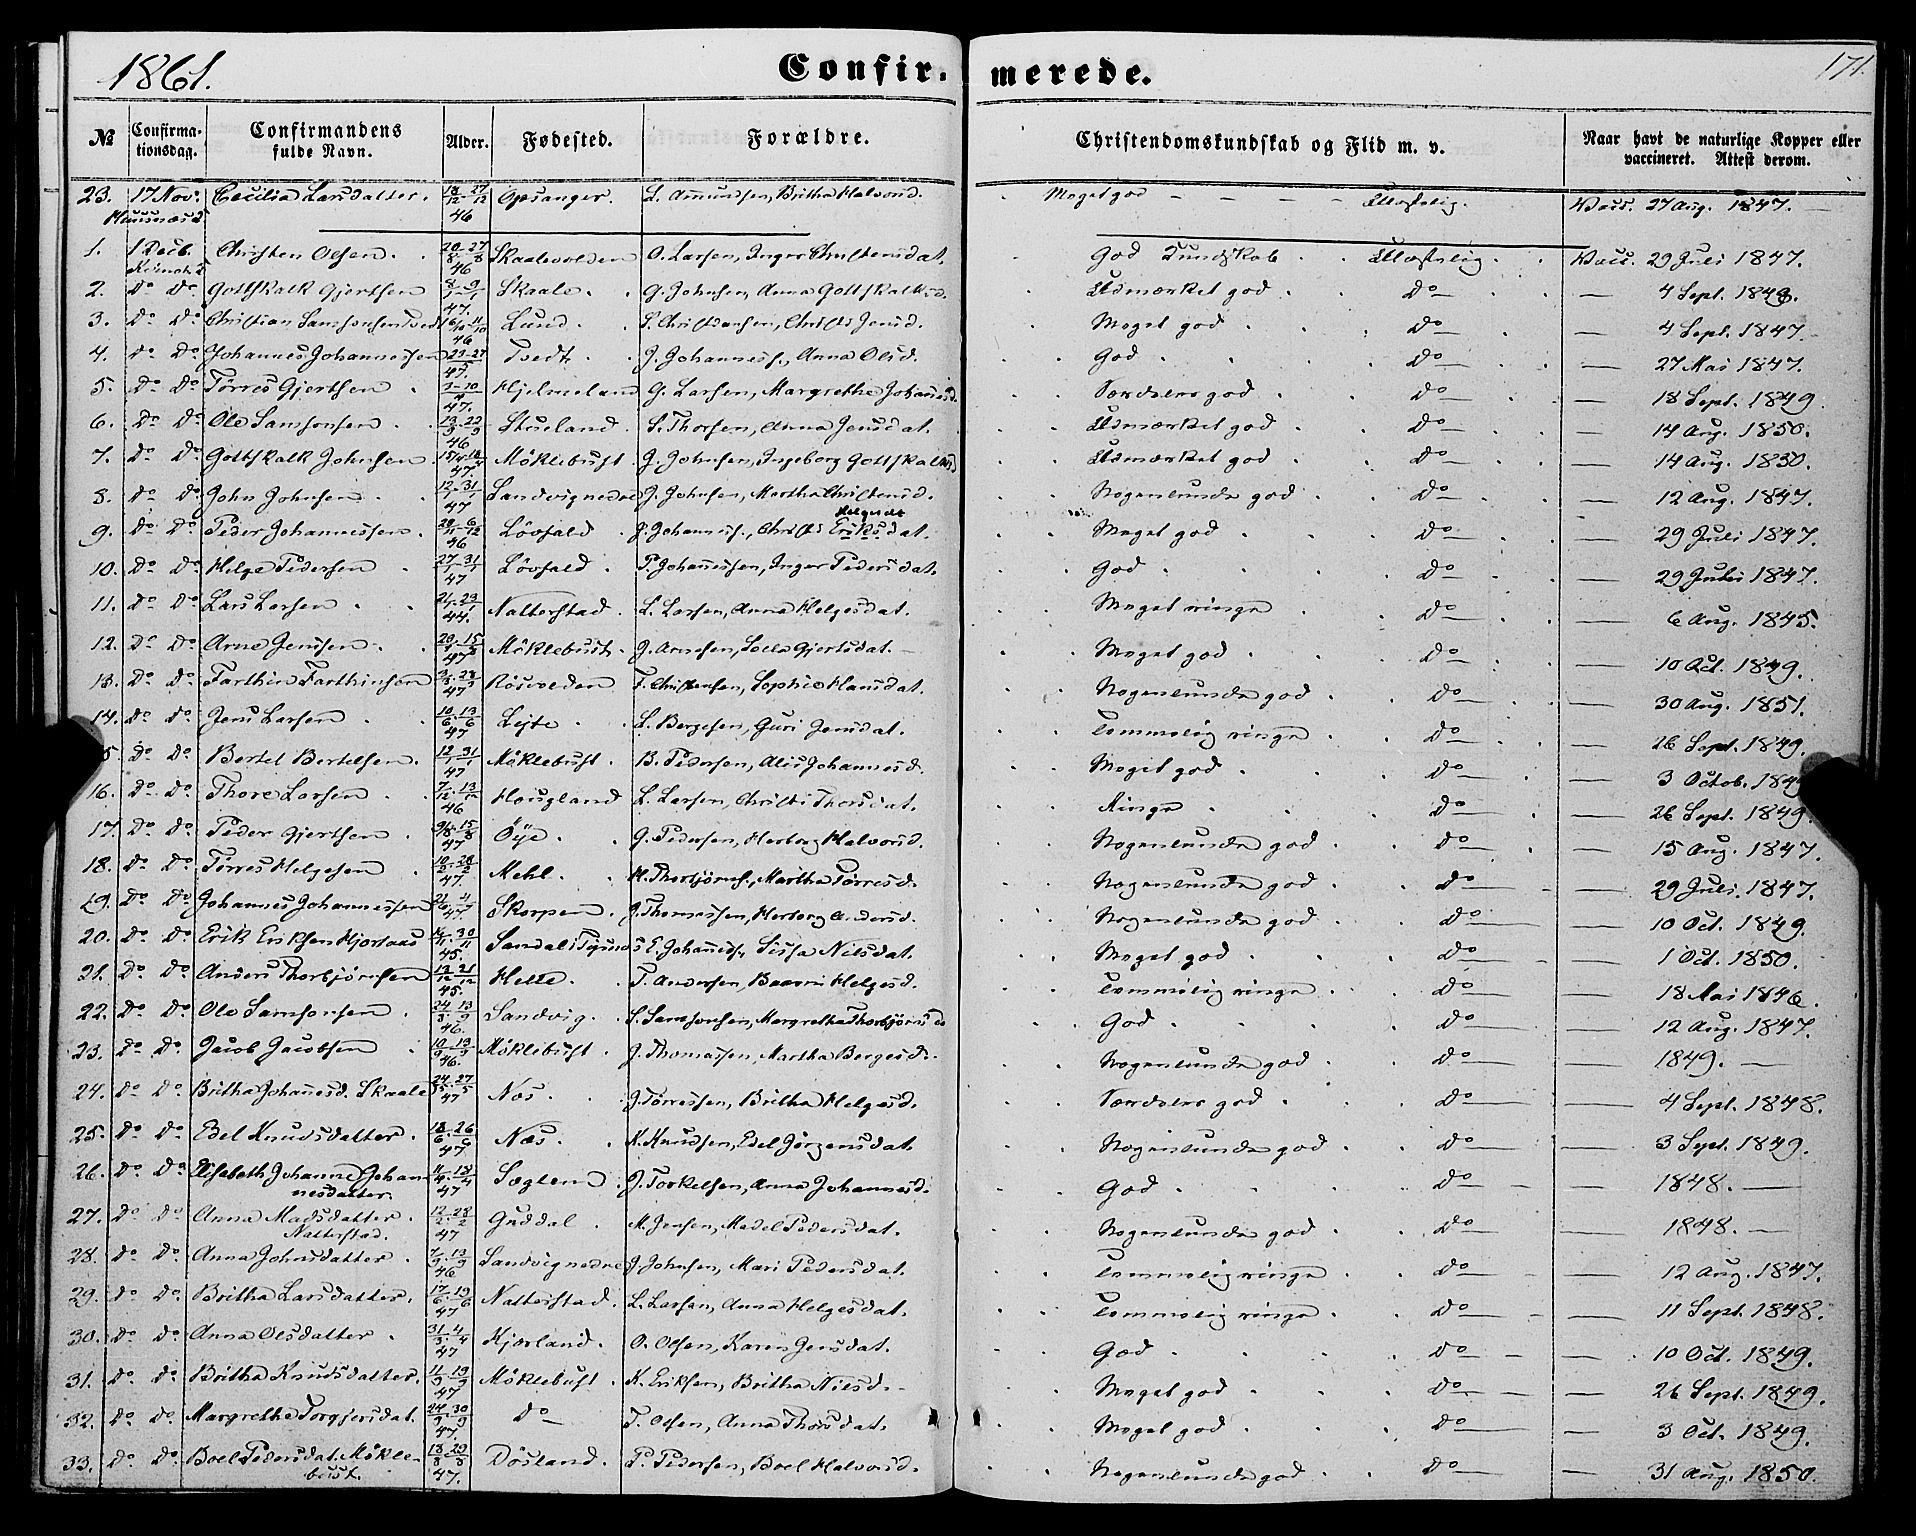 1861. Confir- merede. 171.
№ Confirma-tionsdag. Confirmandens fulde Navn. Alder. Fødested. Forældre. Christendomskundskab og Flid m. v. Naar havt de naturlige Kopper eller vaccineret. Attest derom.
23. 17 Nov. Cecilia Larsdatter. 18/12 - 27/12 46 Opsanger. L. Amundsen, Britha Halvorsd. Meget god - - - - Vacc. 27 Aug. 1847.
1. 1 Decb. Christen Olsen. 20/8 - 27/8 46 Skaalevolden O. Larsen, Inger Christensdat. God Kundskab Vacc. 29 Juli 1847.
2. Do Do Gottskalk Gjertsen 47. Skaale. G. Johnsen, Anna Gottskalksd. Udmærket god Do — 4 Sept. 1849.
3. Do Do Christian Samsonsen Tvedt 46 Lund. S. Christiansen, Christi Jensd. Meget god Do — 4 Sept. 1847.
4. Do Do Johannes Johannessen 47. Tvedt J. Johanness., Anna Olsd. God Do — 27 Mai 1847.
5. Do Do Tørres Gjertsen 47. Hjelmeland G. Larsen, Margrethe Johannesd. Særdeles god Do — 18 Sept. 1849.
6. Do Do Ole Samsonsen 46 Skueland. S. Thorsen, Anna Jensdat. Udmærket god Do — 14 Aug. 1850.
7. Do Do Gottskalk Johnsen 47. Möklebust J. Johnsen, Ingeborg Gottskalksd Udmærket god Do — 14 Aug. 1850.
8. Do Do John Johnsen 12/1 - 31/1 47 Sandvig nedre J. Johnsen, Martha Christensd. Nogenlunde god Do — 12 Aug. 1847.
9. Do Do Peder Johannessen 46 Lövfald J. Johanness., Christi Eriksdat. Meget god Do — 29 Juli 1847.
10. Do Do Helge Pedersen 27/1 31/1 47 Lövfald. P. Johannessen, Inger Pedersdat. God Do — 29 Juli 1847.
11. Do Do Lars Larsen 44. Natterstad. L. Larsen, Anna Helgesdat. Meget ringe Do — 6 Aug. 1845.
12. Do Do Arne Jensen 47 Möklebust. J. Arnesen, Gjertsdat. Meget god Do — 10 Oct. 1849.
13. Do Do Farthin Farthinsen 47 Rösvolden F. Christensen, Sophie Hansdat. Nogenlunde god Do — 30 Aug. 1851.
14. Do Do Jens Larsen 10/6 - 13/6 47 Lejte L. Bergesen, Guri Jensdat. Temmelig ringe Do — 26 Sept. 1849.
5. Do Do Bertel Bertelsen. 12/1 - 31/1 47 Möklebust. B. Pedersen, Alis Johannesd. Meget god Do — 3 Octob. 184
16. Do Do Thore Larsen 7/12 - 13/12 46 Hougland L. Larsen, Christi Thorsdat. Ringe Do — 26 Sept. 1849.
17. Do Do Peder Gjertsen 47 Öye. G. Pedersen, Herborg Halvorsd. Nogenlunde god Do — 15 Aug. 1847.
18. Do Do Tørres Helgesen 10/2 - 28/2 47. Mehl. H. Thorbjörns., Martha Tørresd. Nogenlunde god Do — 29 Juli 1847.
19. Do Do Johannes Johannessen 47. Skorpen. J. Thomassen, Herborg Andersd. Nogenlunde god Do — 10 Oct. 1849.
20. Do Do Erik Eriksen Hjortaas 45. E. Johanness., Sissa Nilsdat. Meget god Do — 1 Oct. 1850.
21. Do Do Anders Thorbjörnsen 45. Helle. T. Andersen, Helgesd. Temmelig ringe Do — 18 Mai 1846.
22. Do Do Ole Samsonsen 46. Sandvig. S. Samsonsen, Margretha Thorbjörnsd God Do — 12 Aug. 1847.
23. Do Do Jacob Jacobsen 10/9 - 13/9 46. Möklebust. J. Thomassen, Martha Bergesd. Nogenlunde god Do — 1849. —
24. Do Do Britha Johannesd. Skaale 24/5 - 27/5 47 Næs. J. Tørressen, Britha Helgesd. Særdeles god Do — 4 Sept. 1848.
25. Do Do Edel Knudsdatter. 18/6 - 26/6 47. Næs. K. Knudsen, Edel Jörgensdat. Nogenlunde god Do — 3 Sept. 1849.
26. Do Do Elisabeth Johanne Johan-
nesdatter. 11/4 - 18/4 47 J. Torkelsen, Anna Johannesd. God Do — 1848. —
27. Do Do Anna Madsdatter Natterstad. 12/2 - 28/2 47 Guddal. M. Jensen, Madel Pedersdat. Nogenlunde god Do — 1848. —
28. Do Do Anna Johnsdatter 7/9 - 13/9 46 Sandvig nedre J. Johnsen, Mari Pedersdat. Temmelig ringe Do — 12 Aug. 1847.
29. Do Do Britha Larsdatter. 17/6 - 19/6 47 Natterstad. L. Larsen, Anna Helgesdat. Temmelig ringe Do — 11 Sept. 1848.
30. Do Do Anna Olsdatter 31/3 - 4/4 47 Kjærland. O. Olsen, Karen Jensdat. God Do — 10 Oct. 1849.
31. Do Do Britha Knudsdatter. 47 Möklebust. K. Eriksen, Britha Nilsd. Meget god Do — 26 Sept. 1849.
32. Do Do Margretha Torgjersdat. 47. Do T. Olsen, Anna Thorsdat. Meget god Do — 3 Oct. 1849.
33. Do Do Boel Pedersdat. Mökle-
bust. 47. Dösland. P. Pedersen, Boel Halvorsd. Nogenlunde god Do — 31 Aug. 1850.